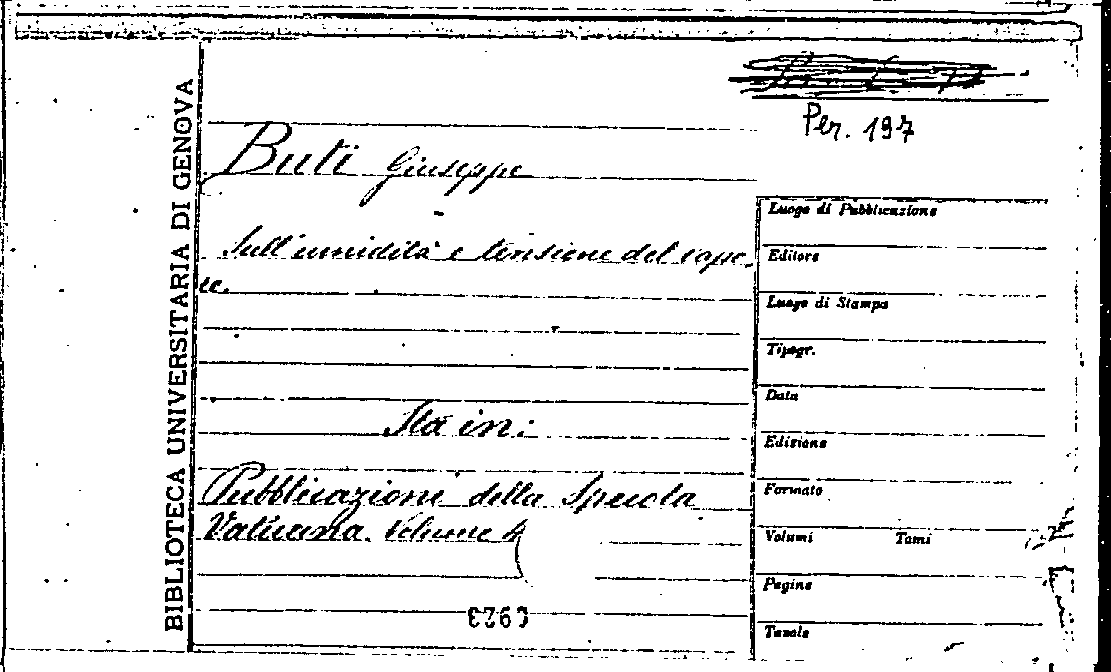 BIBLIOTECA UNIVERSITARIA DI GENOVA
Per. 197
Buti Giuseppe
Sull'umidità e tensione del vapo-
re.
Sta in:
Pubblicazioni della Specola
Vaticana. Volume 4
Luogo di Pubblicazione
Editore
Luogo di Stampa
Tipogr.
Data
Edizione
Formato
Volumi Tomi
Pagine
Tavole